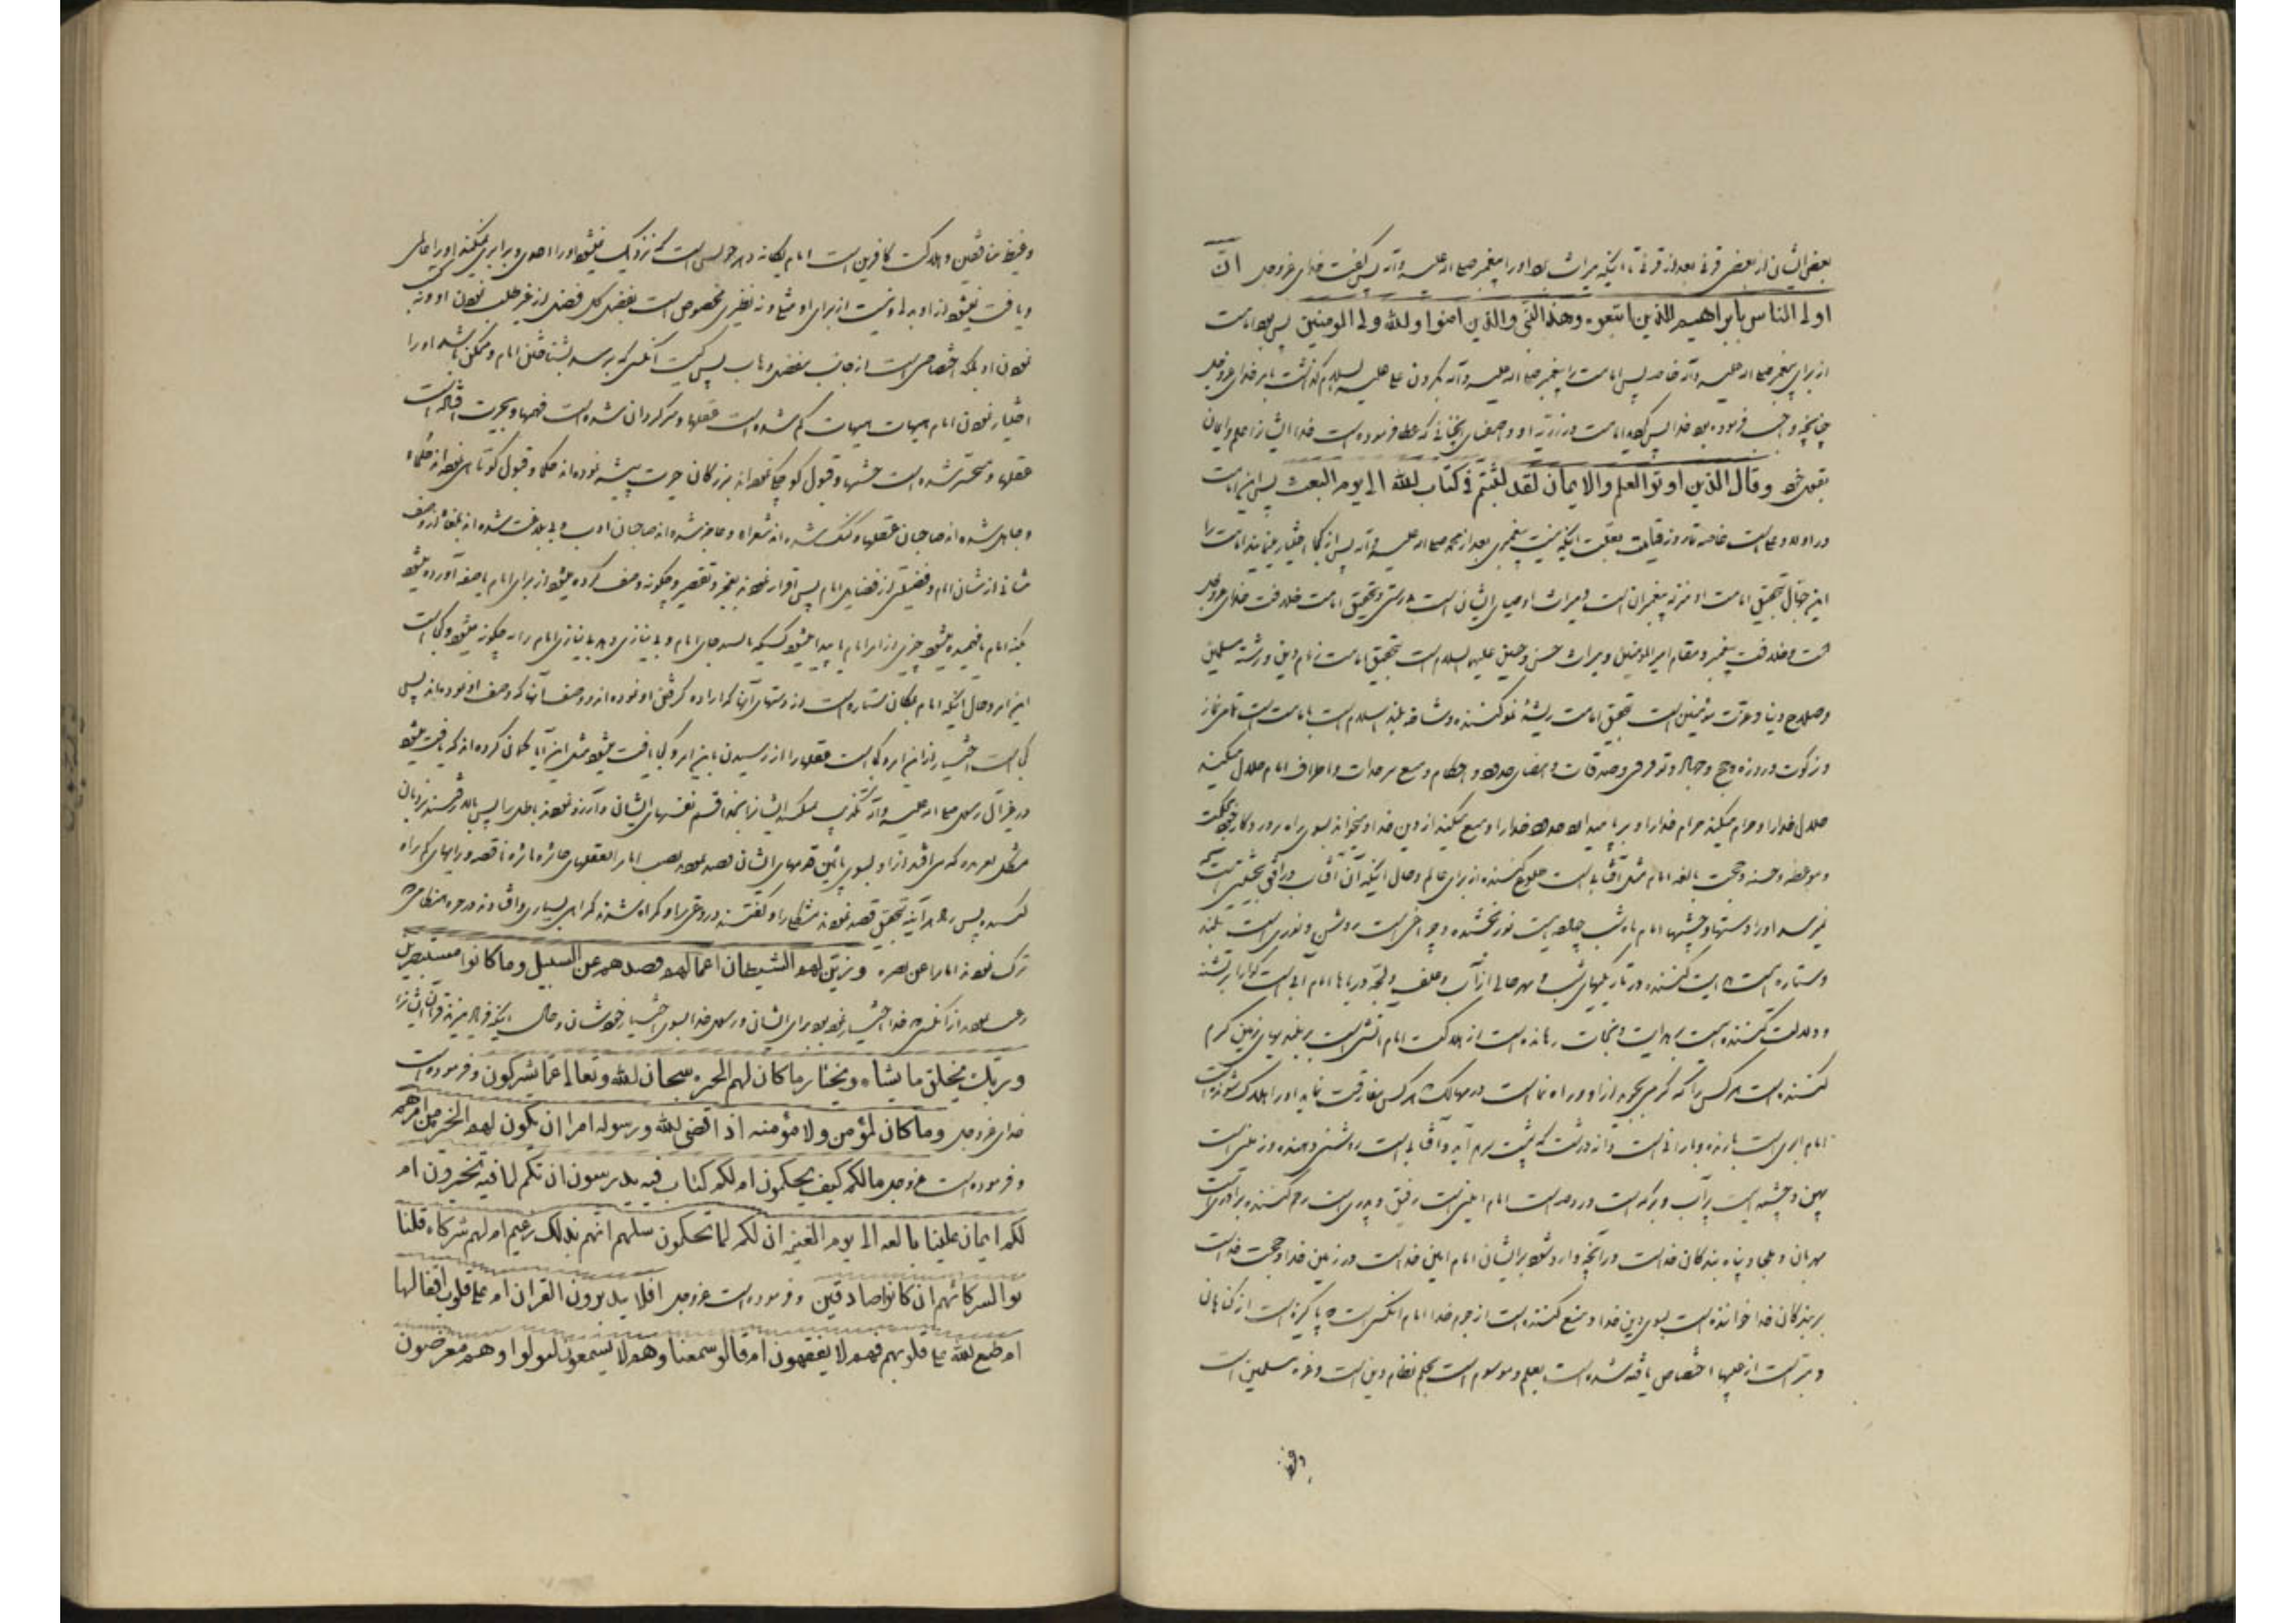 بعض ایشان از بعض قرنی بعد از قرنی تا اینکه میراث داد او را پیغمبر صلی الله علیه وآله پس گفت خدای عزوجل انّ
اولی الناس بابراهیم للذین اتبعوه وهذا النبی والذین امنوا والله ولی المومنین پس بود امامت
از برای پیغمبر صلی الله علیه وآله خاصه پس امامت را پیغمبر صلی الله علیه وآله بگردن علی علیه السلام گذاشت بامر خدای عزوجل
چنانچه واجب فرموده بود خدا پس گردید امامت در ذریه او و اصفیای انچنانی که عطا فرموده است خدا ایشانرا علم وایمان
بقول خود وقال الذین اوتوا العلم والایمان لقد لبثتم فی کتاب الله الی یوم البعث پس این امامت
در اولاد علی است خاصه تا روز قیامت بعلت اینکه نیست پیغمبری بعد از محمد صلی الله علیه وآله پس از کجا اختیار مینمایند امامت را
این جهال بتحقیق امامت او منزله پیغمبران است و میراث اوصیای ایشان است بدرستی وتحقیق امامت خلافت خدای عزوجل
است وخلافت پیغمبر ومقام امیر المومنین ومیراث حسن وحسین علیهم السلام است بتحقیق امامت زمام دین ورشته مسلمین
وصلاح دنیا وعزت مؤمنین است بتحقیق امامت ریشه نمو کننده وشاخه بلند اسلام است بامامت است تمامی نماز
وزکوت وروزه وحج وجهاد وتوفر فی وصدقات وامضای حدود واحکام ومنع سرحدات واطراف امام حلال میکند
حلال خدا را وحرام میکند حرام خدا را وبر پا میدارد حدود خدا را ومنع میکند از دین خدا ومیخواند بسوی راه پروردکار خود بحکمت
وموعظه حسنه وحجت بالغه امام مثل آفتاب است طلوع کننده از برای عالم وحال اینکه آن آفتاب در افقی بحیثیتی است که
نمیرسد او را دستها وچشمها امام ماه شب چهارده است نور بخشنده وچراغی است روشن ونوری است بلند
وستاره است هدایت کننده در تاریکیهای شب ... امام آبی است کوارا بر تشنه
ودلالت کننده است بهدایت ونجات دهنده است از هلاکت امام آتشی است بر بلندیهای زمین گرم
کننده است هر کس را که گرمی بجوید از او وراه نما است در مهالک هر کس مفارقت نماید او را هلاک شونده است
امام ابری است بارنده وبارانی است ... وآفتابی است روشنی دهنده وزمینی است
پهن وچشمه ایست پر آب وبرکه است وروضه است امام امینی است رفیق وپدری است رحم کننده برادری است
مهربان وملجا وپناه بندکان خداست در آنچه وارد شود بر ایشان امام امین خداست در زمین خدا وحجت خداست
بر بندکان خدا خواننده است بسوی دین خدا ومنع کننده است از حرم خدا امام انکس است که پاکیزه است از کناهان
ومبرّاست از عیبها اختصاص یافته شده است بعلم وموسوم است بحلم نظام دین است وعزت مسلمین است
وغیظ
وغیظ منافقین وهلاکت کافرین است امام یکانه دهر خویش است که نزدیک نمیشود او را احدی وبرابری نمیکند او را عالمی
ویافت نمیشود از او بدلی ونیست از برای او مثلی ونه نظیری مخصوص است بفضل کل فضل از غیر طلب نمودن او ونه
نمودن او بلکه اختصاصی است از جانب مفضل وهاب پس کیست آنکس که برسد بشناختن امام وممکن باشد او را
اختیار نمودن امام هیهات هیهات کم شده است عقلها وسرکردان شده است فهمها وبحیرت افتاده است
عقلها ومتحیر شده است چشمها وقبول کوچکی نموده اند بزرکان حیرت پیشه نموده اند حکما وقبول کوتاهی نموده اند حلماء
وجاهل شده اند صاحبان عقلها وکنک شده اند شعراء وعاجز شده اند صاحبان ادب وبی بلاغت شده اند بلغاء از وصف
شانی از شان امام وفضیلتی از فضایل امام پس اقرار نمودند بعجز وتقصیر وچکونه وصف کرده میشود از برای امام یا صفه آورده میشود
بکنه امام یا فهمیده میشود چیزی از امر امام یا پیدا میشود کسیکه بایستد جای امام وبی نیازی دهد بی نیازی امام را نه چکونه میشود وکجا است
این امر وحال اینکه امام بمکان ستاره است از دستهای آنها که اراده کرفتن او نموده اند ووصف آنها که وصف او نموده اند پس
کجا است اختیار از این امر وکجا است عقلها را از رسیدن باین امر وکجا یافت میشود مثل این آیا کمان کرده اند که یافت میشود
در غیر آل رسول صلی الله علیه وآله تکذیب نمود ایشانرا بخدا قسم نفسهای ایشان وآرزو نمودند باطل را پس بالا رفتند نردبان
مشکل لغزنده که می افتد از او بسوی پائین قدمهای ایشان قصد نمودند نصب امام را بعقلهای حائره بائره ناقصه ورایهای کمراه
کننده پس ... هر آینه بتحقیق قصد نمودند مشکلی را وکفتند دروغی را وکمراه شدند کمراهی بسیاری وافتادند در حیره هنکامیکه
ترک نمودند امام را عن بصیره وزیّن لهم الشیطان اعمالهم فصدهم عن السبیل وماکانوا مستبصرین
رغبت نمودند از آنکس که خدا اختیار نموده بود برای ایشان ورسول خدا بسوی اختیار خودشان وحال اینکه فریاد میزند قرآن ایشانرا
وربک یخلق ما یشاء ویختار ماکان لهم الخیره سبحان الله وتعالی عما یشرکون وفرموده است
خدای عزوجل وماکان لمؤمن ولا مؤمنه اذا قضی الله ورسوله امرا ان یکون لهم الخیره من امرهم
وفرموده است عزوجل مالکم کیف تحکمون ام لکم کتاب فیه یدرسون ان لکم لما فیه تخیرون ام
لکم ایمان علینا بالغه الی یوم القیمه ان لکم لما تحکمون سلهم انهم بذلک زعیم ام لهم شرکاء فلیا
توا بشرکائهم ان کانوا صادقین وفرموده است عزوجل افلا یتدبرون القران ام علی قلوب اقفالها
ام طبع الله علی قلوبهم فهم لا یفقهون ام قالو سمعنا وهم لا یسمعون لتولوا وهم معرضون